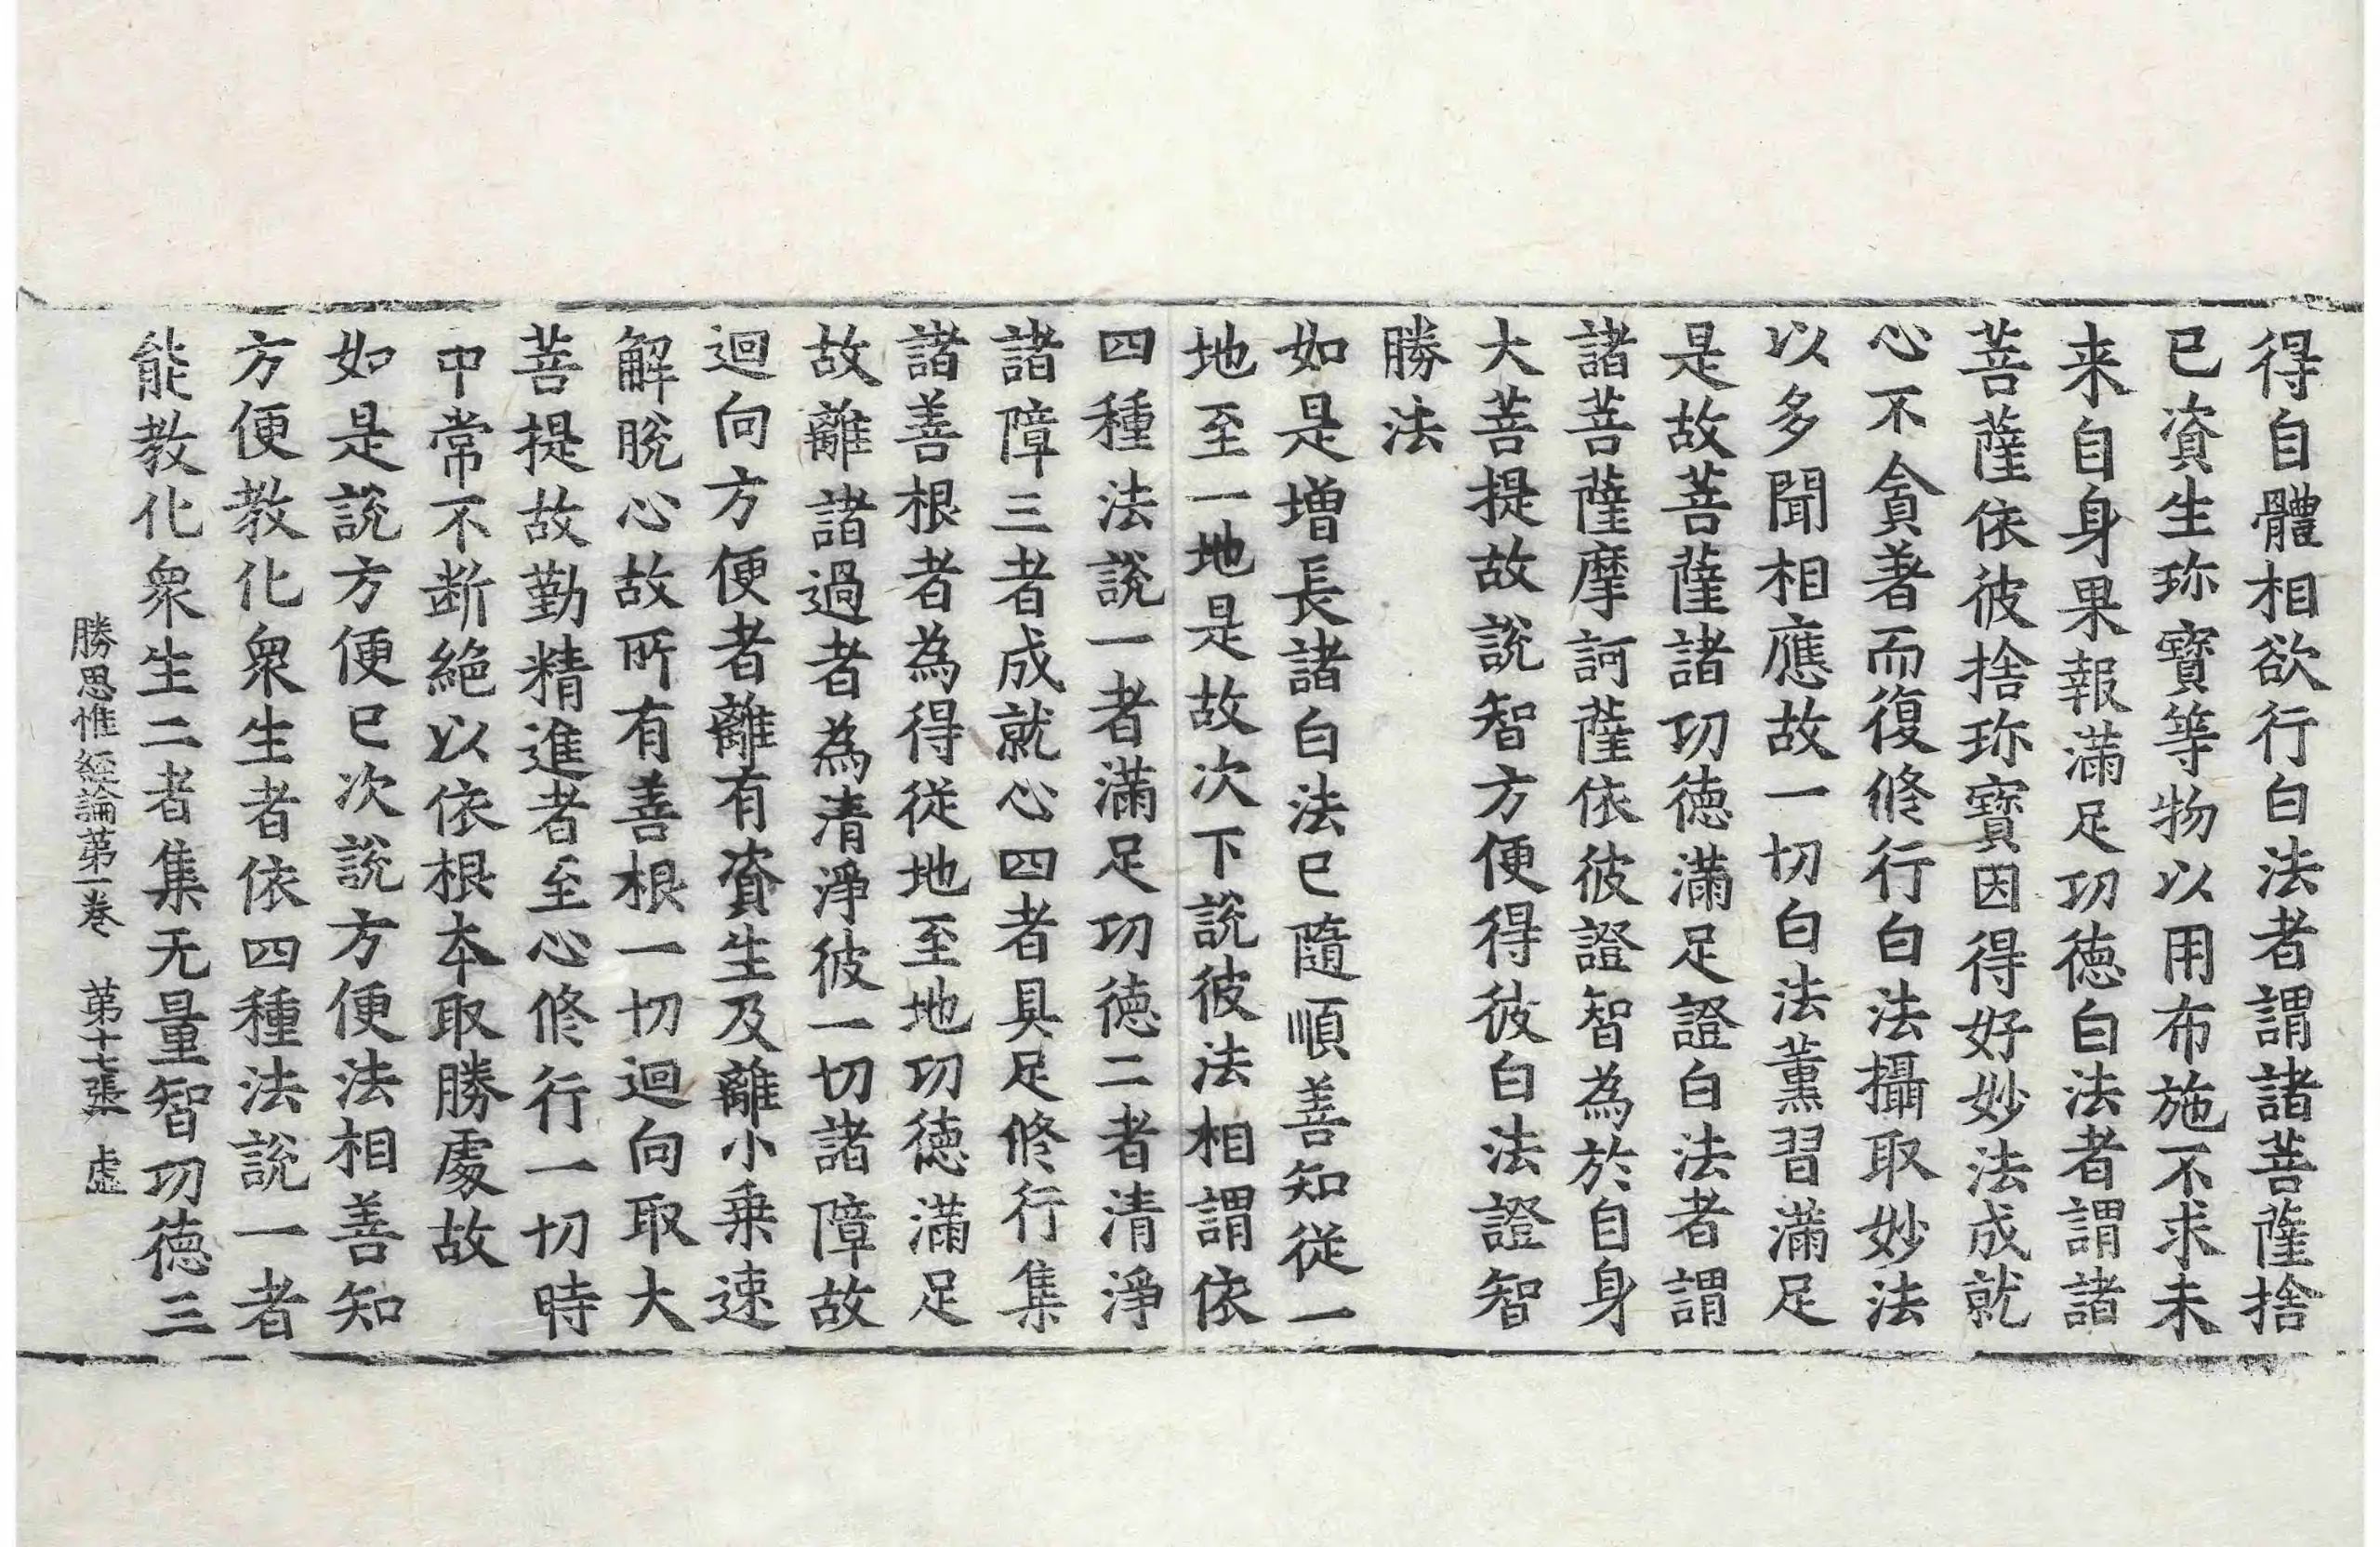 得自體相欲行白法者謂諸菩薩捨
已資生珎寶等物以用布施不求未
来自身果報滿足功徳白法者謂諸
菩薩依彼捨珎寶因得好妙法成就
心不貪著而復修行白法攝取妙法
以多聞相應故一切白法薰習滿足
是故菩薩諸功徳滿足證白法者謂
諸菩薩摩訶薩依彼證智為於自身
大菩提故說智方便得彼白法證智
勝法
如是增長諸白法已隨順善知從一
地至一地是故次下說彼法相謂依
四種法說一者滿足功徳二者清淨
諸障三者成就心四者具足修行集
諸善根者為得從地至地功徳滿足
故離諸過者為清淨彼一切諸障故
迴向方便者離有資生及離小乗速
解脫心故所有善根一切迴向取大
菩提故勤精進者至心修行一切時
中常不断絶以依根本取勝處故
如是說方便已次說方便法相善知
方便教化衆生者依四種法說一者
能教化衆生二者集无量智功徳三
勝思惟經論苐一卷　苐十七張　虛